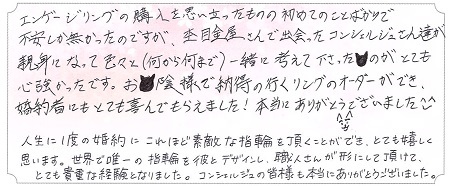 エンゲージリングの購入を思い立ったものの初めてのことばかりで
不安しか無かったのですが、杢目金屋さんで出会ったコンシェルジュさん達が
親身になって色々と(何から何まで)一緒に考えて下さったのがとても
心強かったです。お陰様で納得の行くリングのオーダーができ、
婚約者にもとても喜んでもらえました!本当にありがとうございました^^
人生に1度の婚約にこれほど素敵な指輪を頂くことができ、とても嬉しく
思います。世界で唯一の指輪を彼とデザインし、職人さんが形にして頂けて、
とても貴重な経験となりました。コンシェルジュの皆様も本当にありがとうございました。